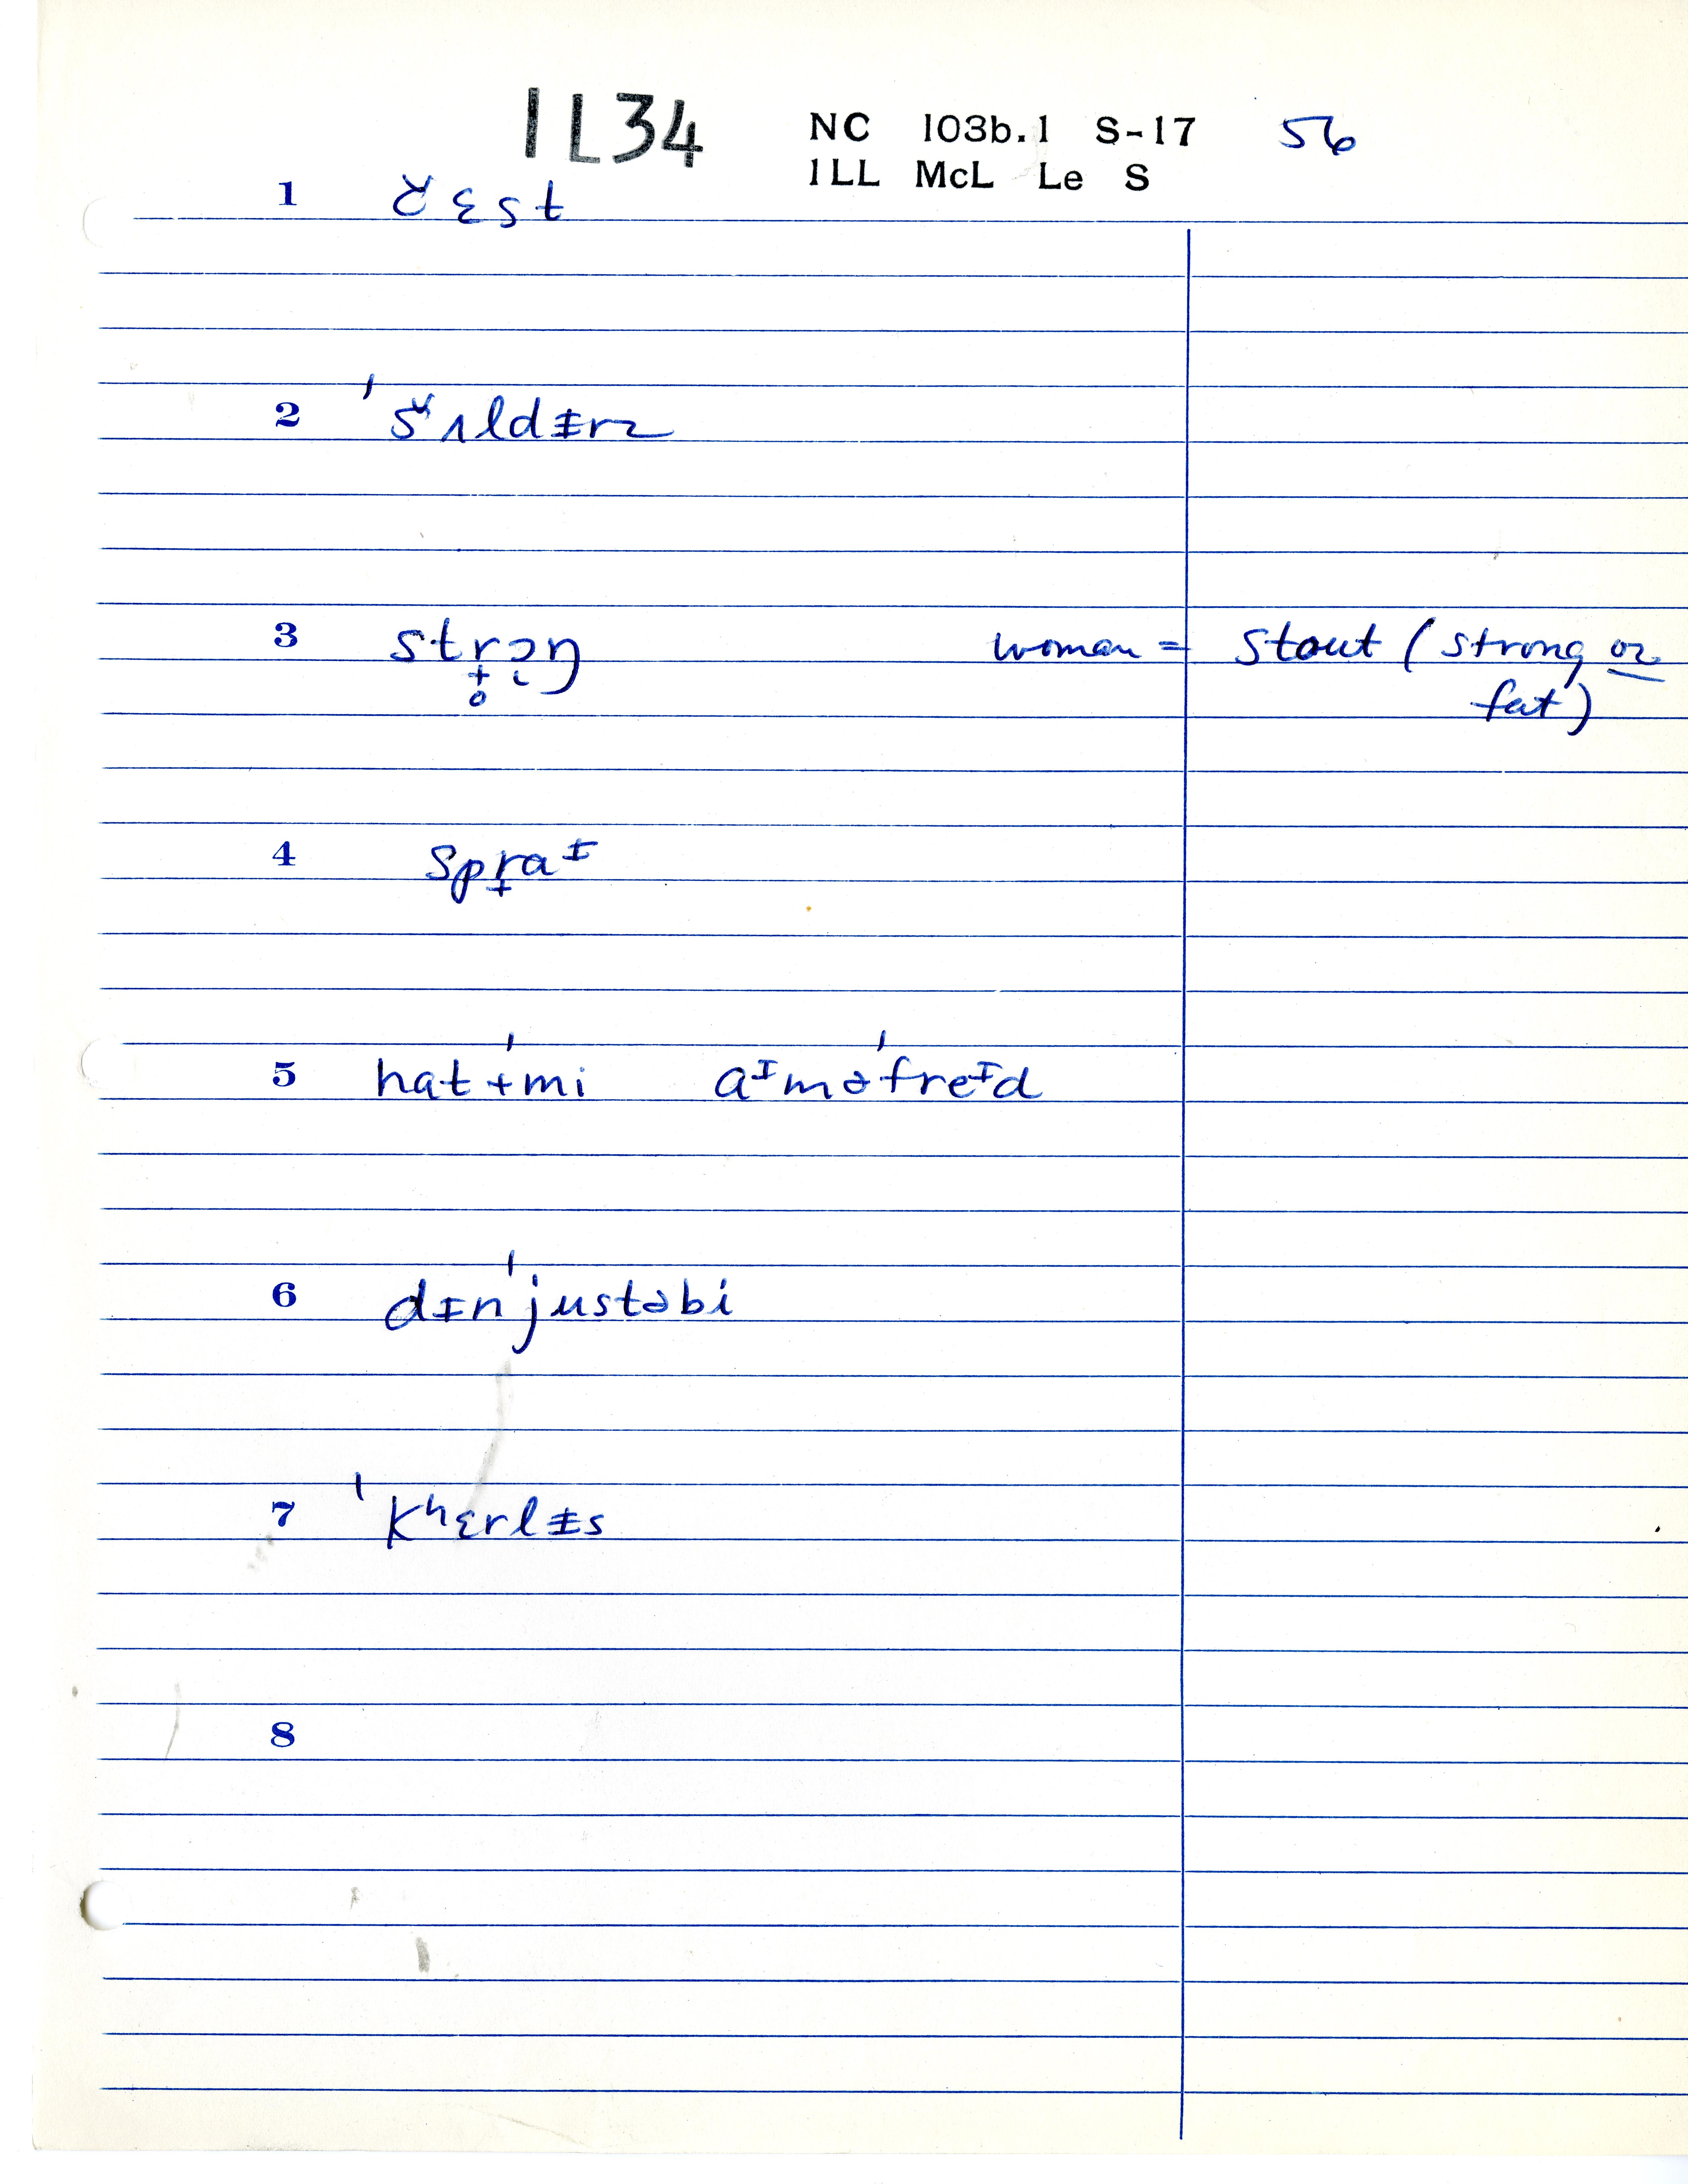 IL34 NC 103b.1 S-17 56
ILL McL Le S
1 ɛst
2 ˈšʌldɪ̵rz
3 str̟̥ɔ̜ŋ woman = stout (strong or
fat)
4 spr̟aᵻ
5 hatˈtmi aᶦməˈfreᶦd
6 dɪnˈjustəbi
7 ˈkʰɛrlɪ̵s
8